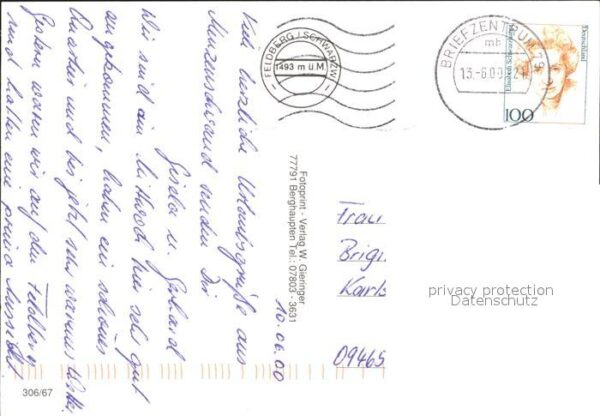 10.06.00
Viele herzliche Urlaubsgrüße aus
Menzenschwand senden Dir
Gisela u. Gerhard
Wir sind am Mittwoch hier sehr gut
angekommen, haben ein schönes
Quartier und bis jetzt sehr warmes Wetter.
Gestern waren wir auf dem Feldberg
und hatten eine prima Aussicht
FELDBERG / SCHWARZW
1493 m ü.M.
BRIEFZENTRUM 79
mb
13.-6.00
Deutschland
Elisabeth
100
Fotoprint - Verlag W. Gieringer
77791 Berghaupten Tel.: 07803 - 3631
Frau
Brigi
Karls
09465
privacy protection
Datenschutz
306/67